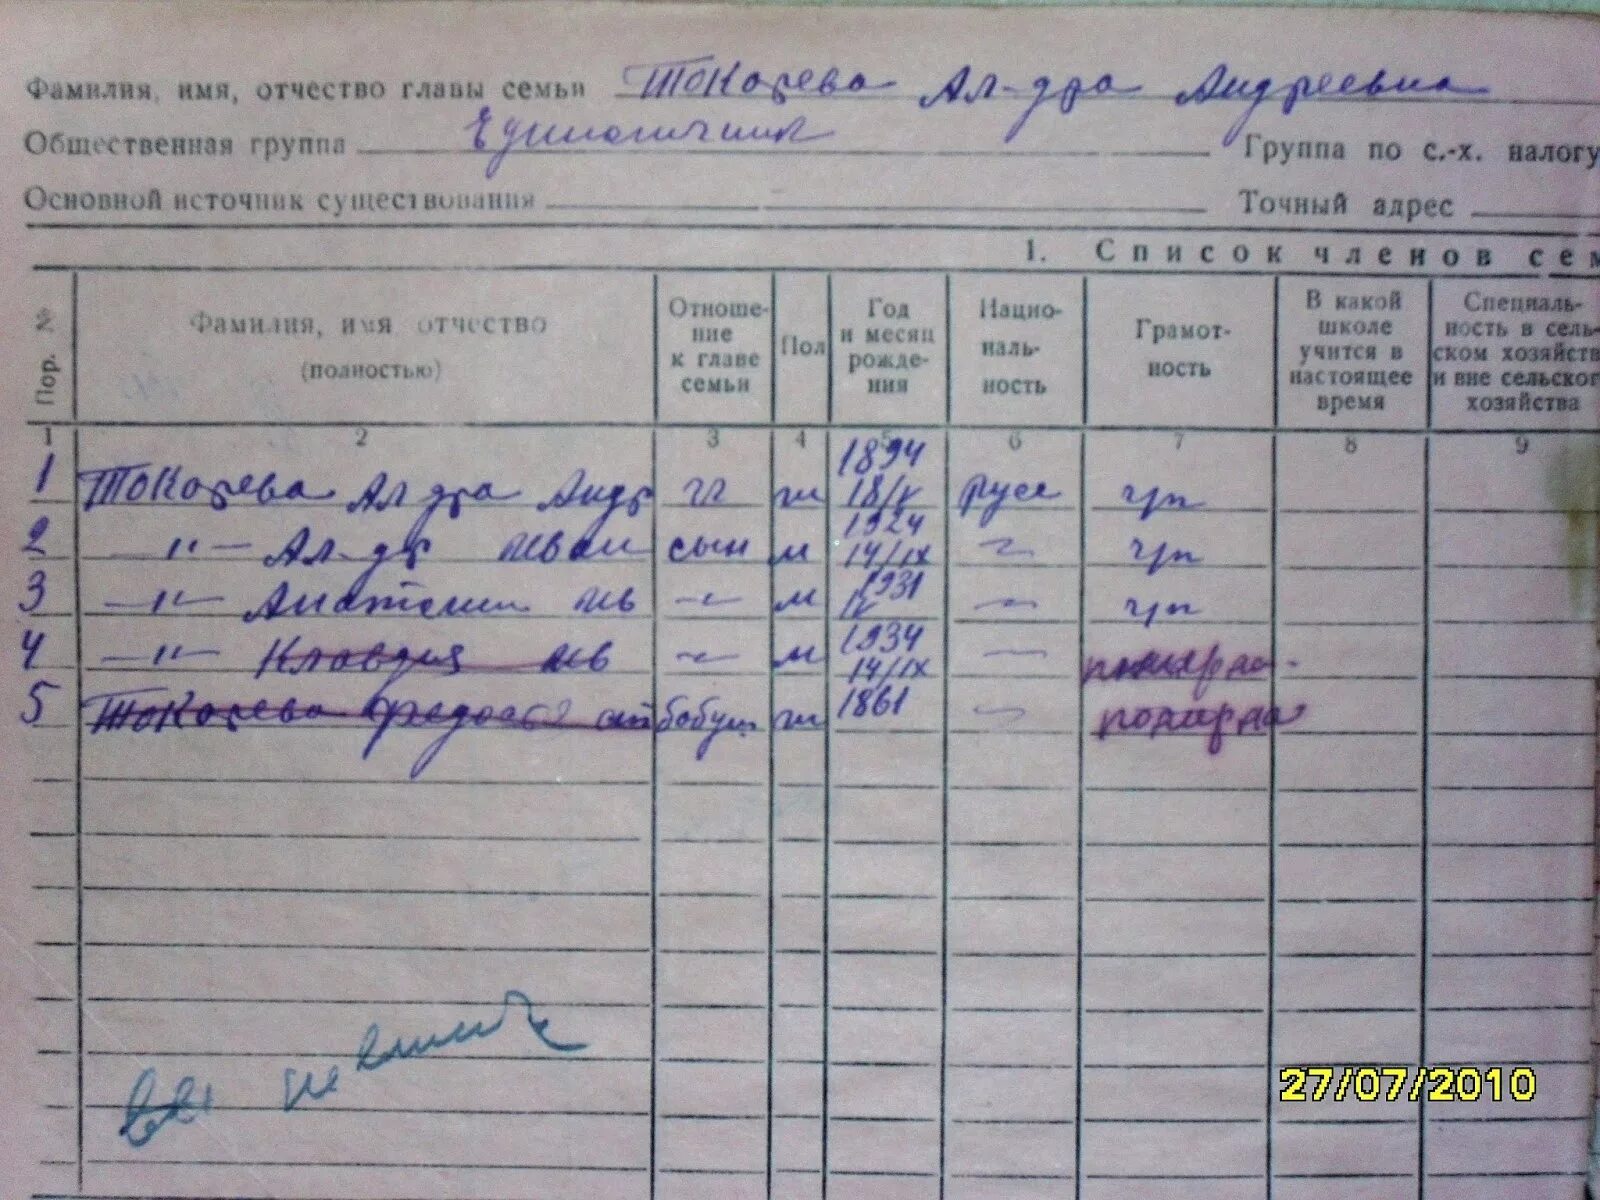 Фамилия, имя, отчество главы семьи Токарева Ал-дра Андреевна
Общественная группа Единоличник Группа по с.-х. налогу
Основной источник существования Точный адрес
1. Список членов сем
№ Пор. Фамилия, имя отчество (полностью) Отноше-ние к главе семьи Пол Год и месяц рожде-ния Нацио-наль-ность Грамот-ность В какой школе учится в настоящее время Специаль-ность в сель-ском хозяйств и вне сельског хозяйства
1 2 3 4 5 6 7 8 9
1 Токарева Ал дра Андр гл ж 1894 18/V русс гр
2 —"— Ал-др Иван сын м 1924 14/IX —"— гр
3 —"— Анатолий Ив —"— м 1931 IV —"— гр
4 —"— Клавдия Ив —"— м 1934 14/IX —"— померла
5 Токарева Федос бабуш ж 1861 —"— померла
27/07/2010